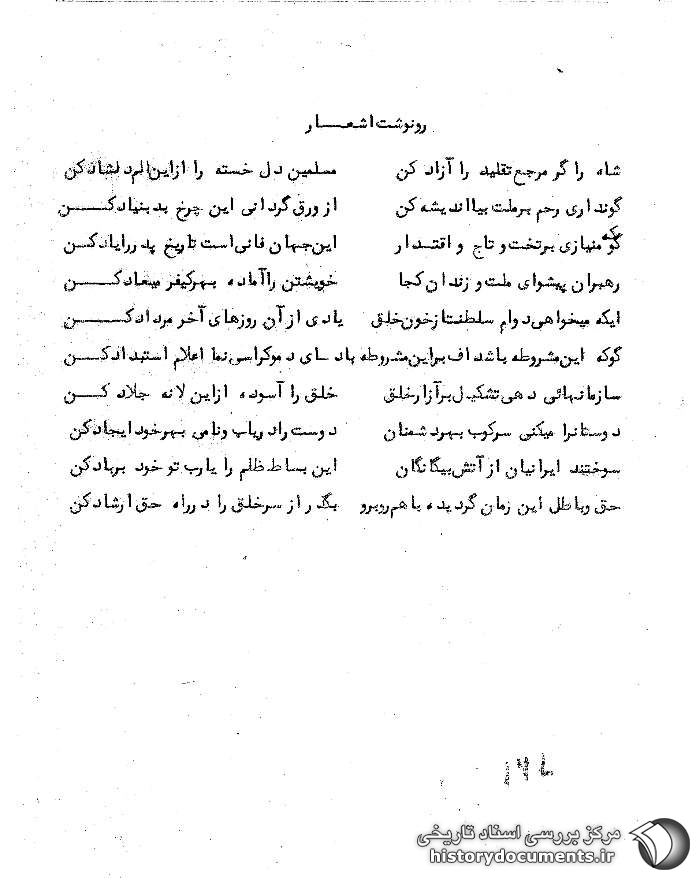 رونوشت اشعـــار
شاه را گر مرجع تقلید را آزاد کن مسلمین دل خسته را ازاین الم دلشاد کن
گونداری رحم برملت بیا اندیشه کن از ورق گردانی این چرخ بد بنیاد کـــن
گو که منیازی برتخت و تاج و اقتـدار این جهان فانی است تاریخ پدر رایاد کـن
رهبران پیشوای ملت و زندان کجا خویشتن راآماده بهرکیفر میعاد کـــن
ایکه میخواهی دوام سلطنت ازخون خلق یادی از آن روزهای آخر مرداد کـــن
گوکه این مشروطه باشد اف براین مشروطه باد ای دموکراسی نما اعلام استبداد کـــن
سازمانهائی دهی تشکیل برآزارخلق خلق را آسوده ازاین لانه جلاد کـــن
دوستانرا میکنی سرکوب بهردشمنان دوست را درباب ونامی بهرخود ایجاد کن
سوختند ایرانیان از آتش بیگانگان این بساط ظلم را یارب تو خود برباد کن
حق وباطل این زمان گردیده باهم روبرو بگذر از سرخلق را درراه حق ارشاد کن
مرکز بررسی اسناد تاریخی
historydocuments.ir